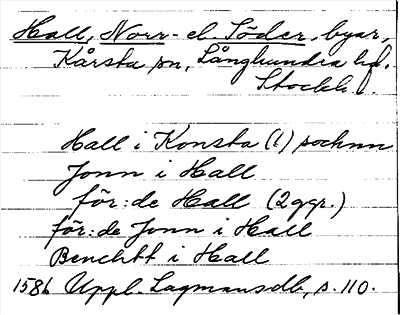 Hall, Norr- el. Söder, byar,
Kårsta sn, Långhundra hd.
Stockh.
Hall i Konsta (!) sochnn
Jonn i Hall
för:de Hall (2 ggr.)
för:de Jonn i Hall
Benchtt i Hall
1586 Uppl. Lagmansdb, s. 110.